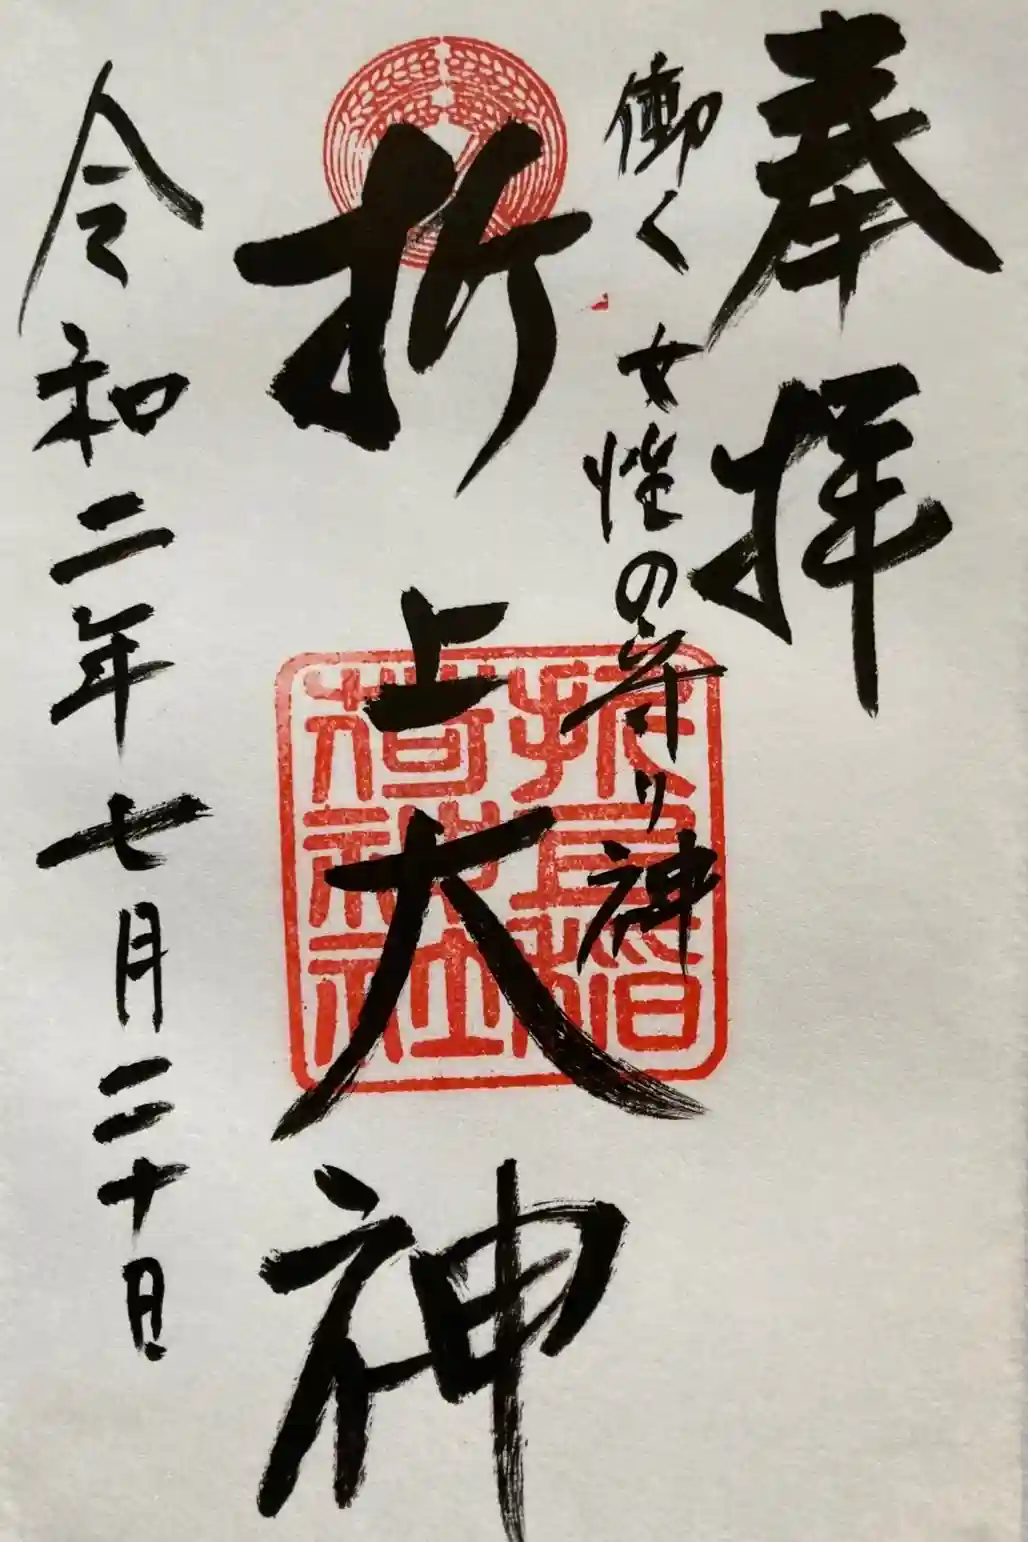 奉拝
働く女性の守り神
折上大神
折上稲
荷神社
令和二年七月二十日